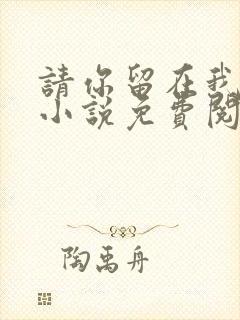 請你留在我
小說免費閱
陶禹舟